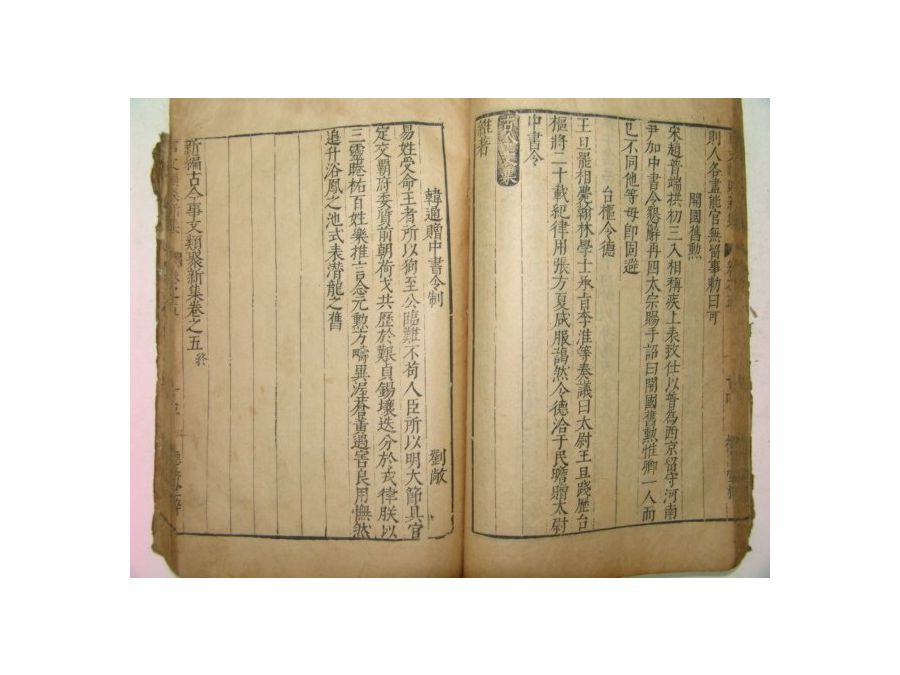 則人各盡能官無留事勅曰可
開國舊勲
宋趙普端拱初三入相稱疾上表致仕以普為西京留守河南
尹加中書令懇解再四太宗賜手詔曰開國舊勲惟卿一人而
已不同他等毋即固避
台樞令德
王旦罷相冀翰林學士承旨李淮等奏議曰太尉王旦踐歷台
樞將二十載紀律用張方夏咸服謁然令德洽于民瞻贈太尉
中書令
古今文集
雜著
韓通贈中書令制 劉敞
易姓受命王者所以狥至公臨難不苟人臣所以明大節具官
定交霸府委質前朝荷戈共歷於艱貞錫壤迭分於戎律朕以
三靈睠祐百姓樂推言念元勲方疇異渥蒼黃遇害良用憮然
追升浴鳳之池式表潛龍之舊
新編古今事文類聚新集卷之五 終